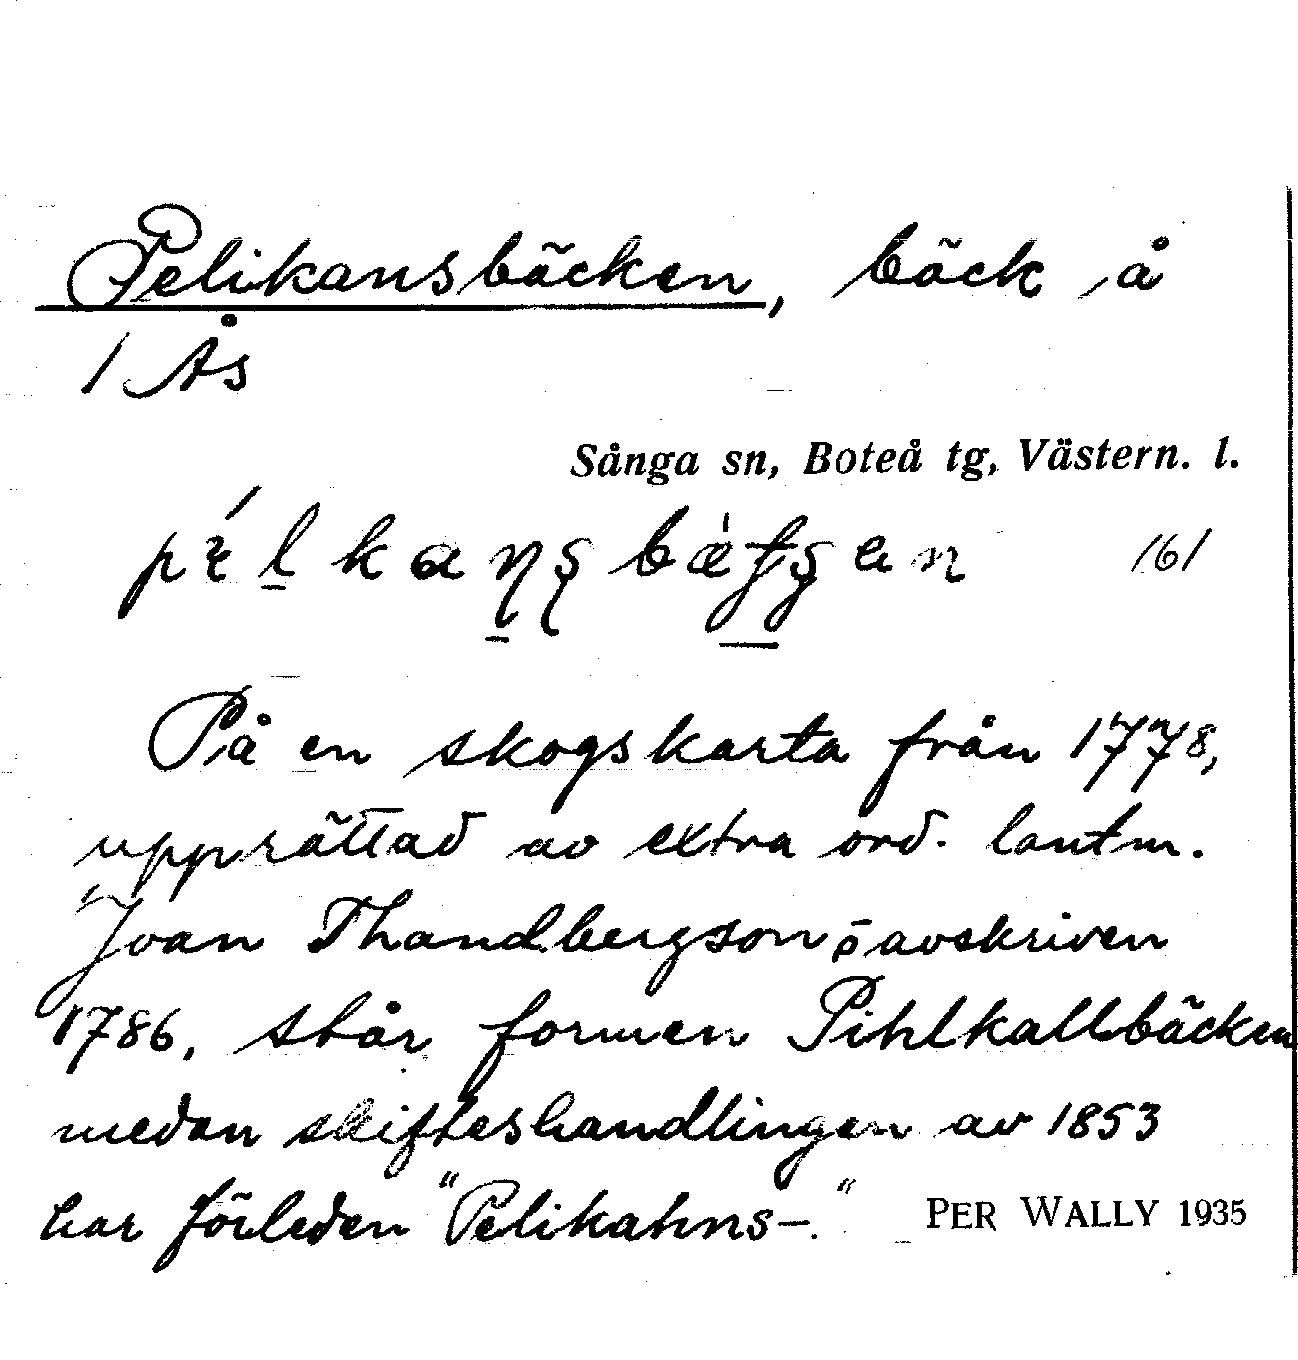 Pelikansbäcken, bäck å
1 Ås
Sånga sn, Boteå tg, Västern. l.
161
På en skogskarta från 1778,
upprättad av extra ord. lantm.
Joan Thandbergson o avskriven
1786, står formen Pihlkallbäcken
medan skifteshandlingen av 1853
har förleden "Pelikahns-."
PER WALLY 1935